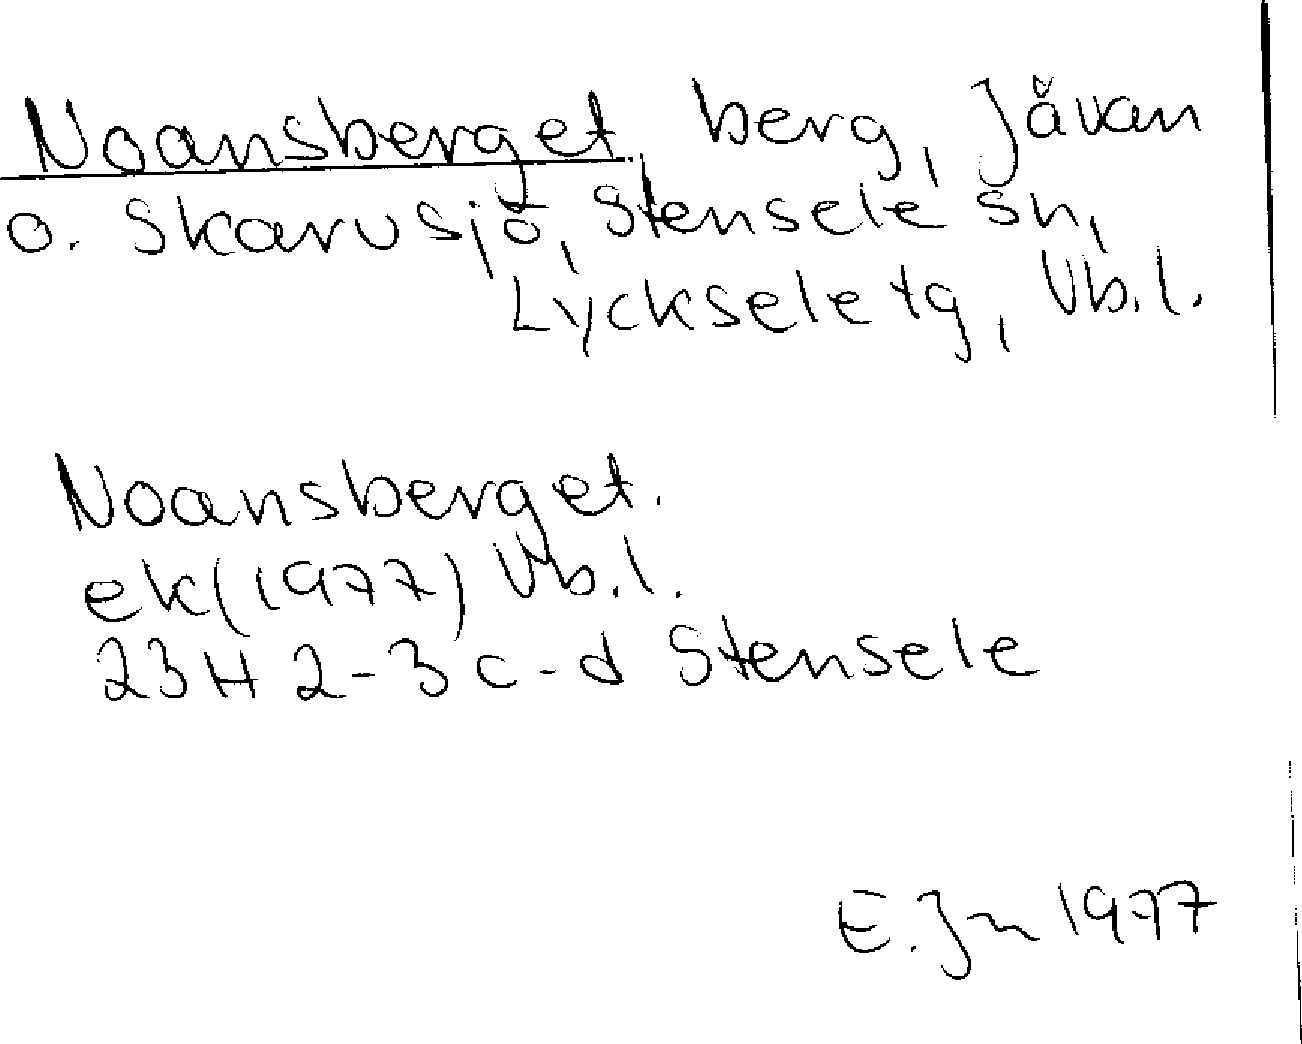 Noansberget, berg, Jåvan
o. Skarvsjö, Stensele sn,
Lycksele tg, Vb.l.
Noansberget.
ek(1977) Vb.l.
23H 2-3 c-d Stensele
E.Jn 1977